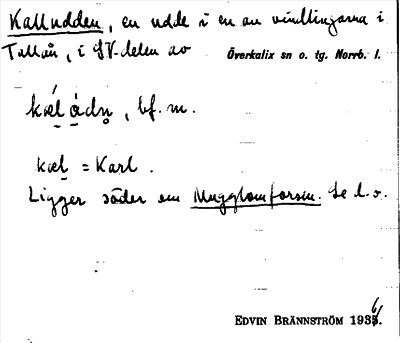 Kalludden, en udde i en av vindlingarna i
Tallån, i SV-delen av Överkalix sn o. tg. Norrb. l.
kæl ådn, bf. m.
kæl = Karl.
Ligger söder om Mugglomforsen. Se d. o.
EDVIN BRÄNNSTRÖM 1936.